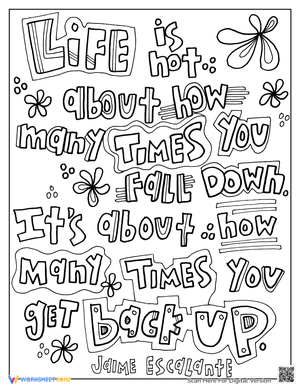 Life is
not
about how
many Times you
Fall Down.
It's about how
many Times you
get back up.
Jaime Escalante
WORKSHEETZONE
Scan Here For Digital Version